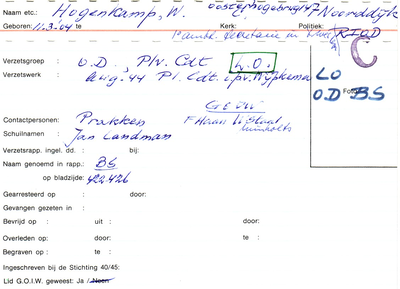 Naam etc.: Hogenkamp, W. Noorddijk
Geboren: 11.3.04 te Kerk: Politiek:
secretaris in RIOD
C
Verzetsgroep : O.D., Plv. Cdt L.O.
Verzetswerk : Aug. 44 Pl. Cdt. i.p.v. Wypkema
LO
O.D BS
Foto
Contactpersonen: Prakken
Schuilnamen : Jan Landman
F Haan
Verzetsrapp. ingel. dd. : bij:
Naam genoemd in rapp.: BS
op bladzijde: 422, 426
Gearresteerd op : door:
Gevangen gezeten in :
Bevrijd op : uit : door:
Overleden op: door: te :
Begraven op : te :
Ingeschreven bij de Stichting 40/45:
Lid G.O.I.W. geweest: Ja / Neen